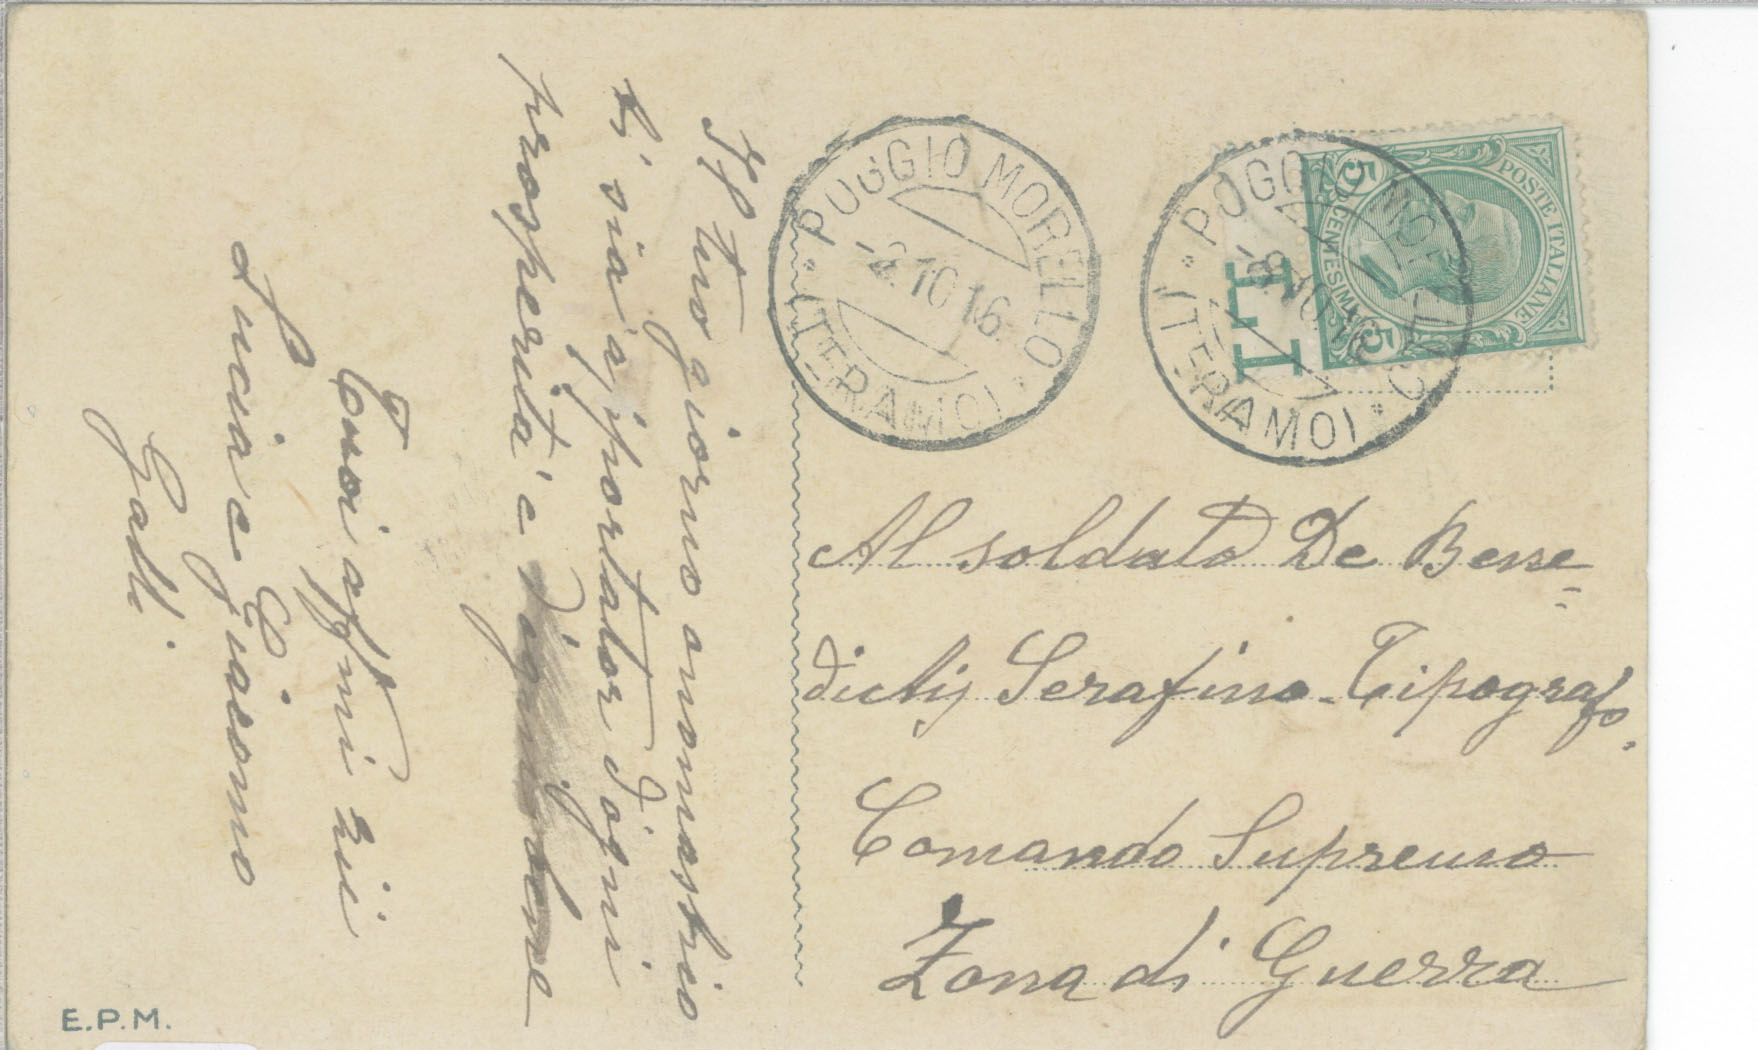 Il tuo giorno onomastico
ti sia apportator d'ogni
prosperità e d'ogni bene
Tuoi aff.mi zii
Lucia e Giacomo
Galli.
POGGIO MORELLO
-2.10.16
(TERAMO)
POGGIO MORELLO
(TERAMO)
POSTE ITALIANE
CENTESIMI
5
5
Al soldato De Bene=
dictis Serafino - Tipografo.
Comando Supremo
Zona di Guerra
E.P.M.